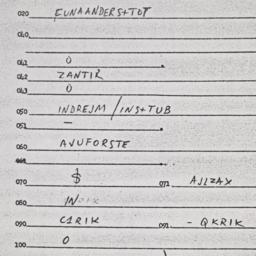 020 EUNAANDERS+TOT
040
041 0
042 ZANTIR
043 0
050 INDREJM / INS+TUB
051 —
060 AJUFORSTE
070 $ 071 AJLZAX
080 IN
090 C1RIK 091 - QKRIK
100 0